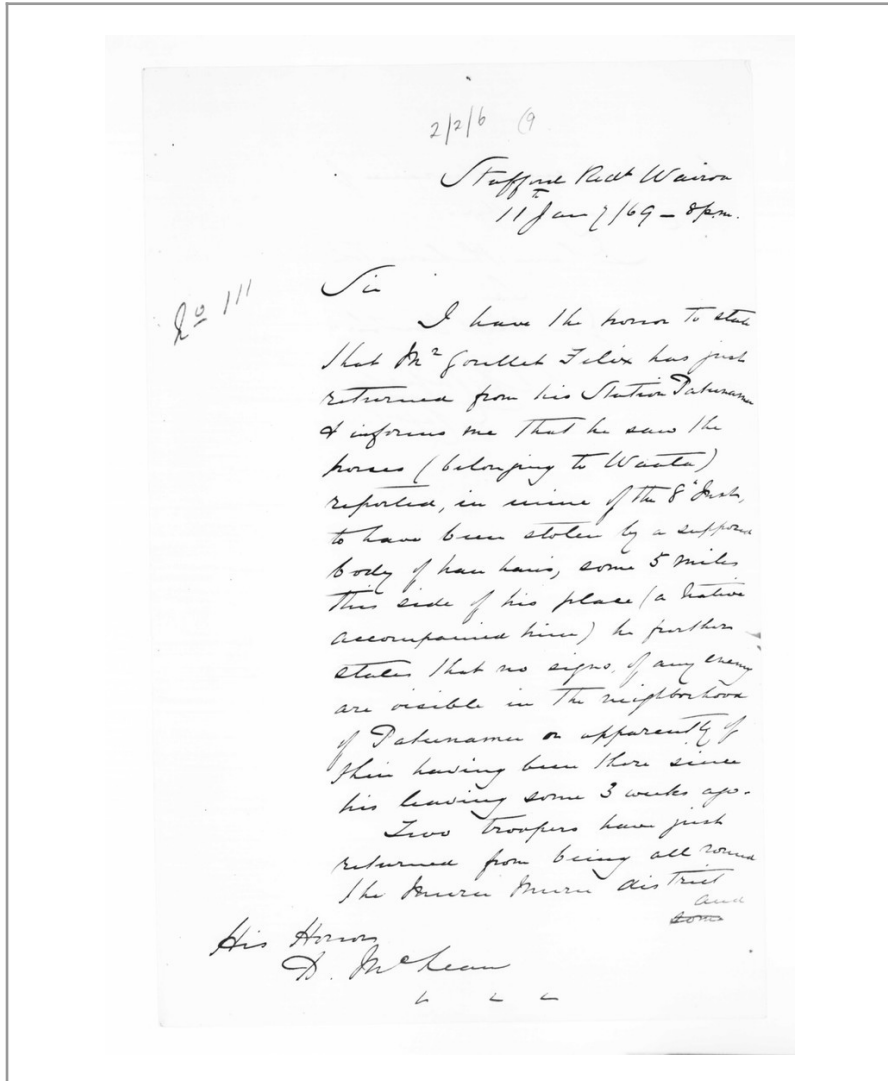 2/2/6 (9
Stafford Redt Wairoa
11th Jany/69 - 8 p.m.
No 111
Sir
I have the honor to state
that Mr Goullet Felix has just
returned from his Station
& informs me that he saw the
horses (belonging to
reported, in mine of the 8th Inst,
to have been stolen by a supposed
body of hau haus, some 5 miles
this side of his place (a Native
accompained him) he further
states that no signs, of any enemy
are visible in the neighborhood
of or apparently of
their having been there since
his leaving some 3 weeks ago.
Two troopers have just
returned from being all round
the district
and
some
His Honor
D. McLean